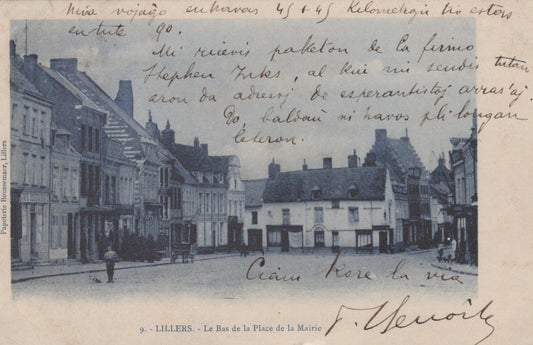 Nia vojaĝo enhavas 45 + 45 Kilometrojn tio estas
entute 90.
Mi ricevis paketon de la firmo
Stephen Inks, al kiu mi sendis tutan
aron da adresoj de esperantistoj arrasaj.
Do, baldaŭ ni havos pli longan
leteron.
Ciam Kore la via
F. Benoît
9. - LILLERS. - Le Bas de la Place de la Mairie
Papeterie Boussemaer, Lillers